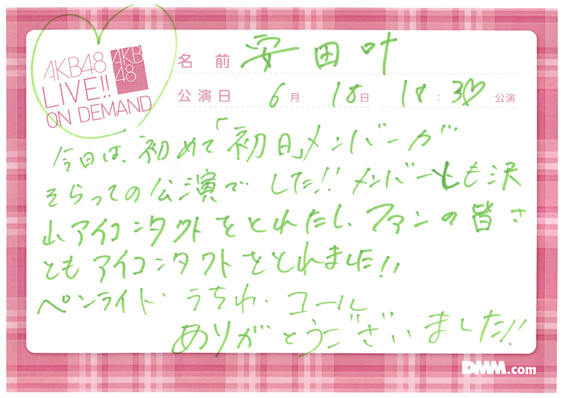 AKB48
LIVE!!
ON DEMAND
AKB
48
名前 安田叶
公演日 6月 18日 18:30 公演
今日は、初めて「初日」メンバーが
そろっての公演でした!! メンバーとも沢
山アイコンタクトをとれたし、ファンの皆さ
ともアイコンタクトをとれました!!
ペンライト・うちわ・コール
ありがとうございました!!
DMM.com